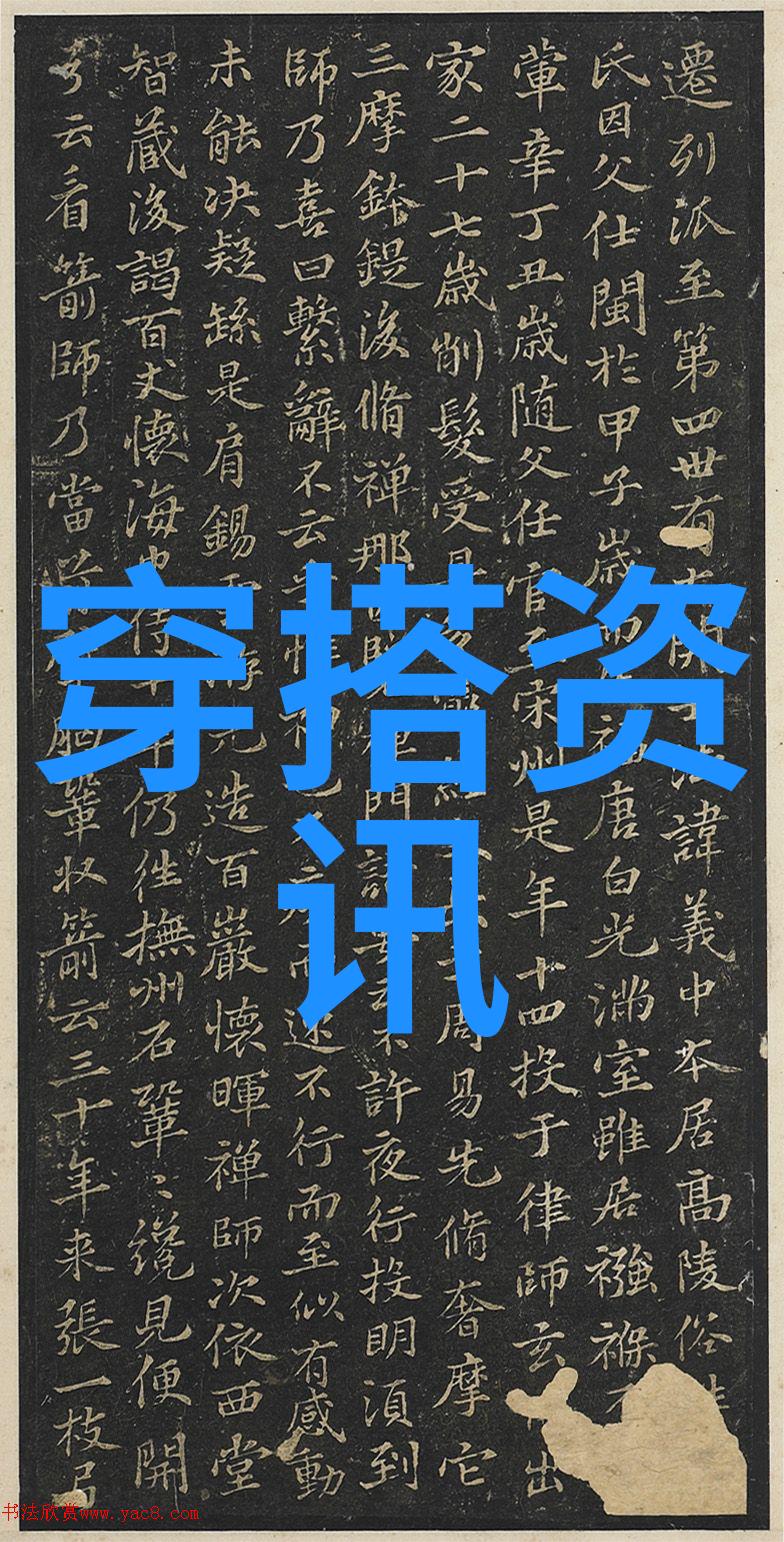 遷列派至第四世有法諱義中本居高陵俗
氏因父仕閩於甲子歲福唐白光滿室雖居襁褓
葷辛丁丑歲随父任官至宋州是年十四投于律師玄出
家二十七歲削髮受周易先脩奢摩它
三摩鉢鍉後脩禪那門不許夜行投明須到
師乃喜曰繫辭不云而速不行而至似有感動
未能决疑繇是肩錫游先造百巖懷暉禪師次依西堂
智藏後謁百丈懷海仍往撫州石鞏〻纔見便開
弓云看箭師乃當胸鞏收箭云三十年来張一枝弓
穿搭资
讯
书法欣赏www.yac8.com